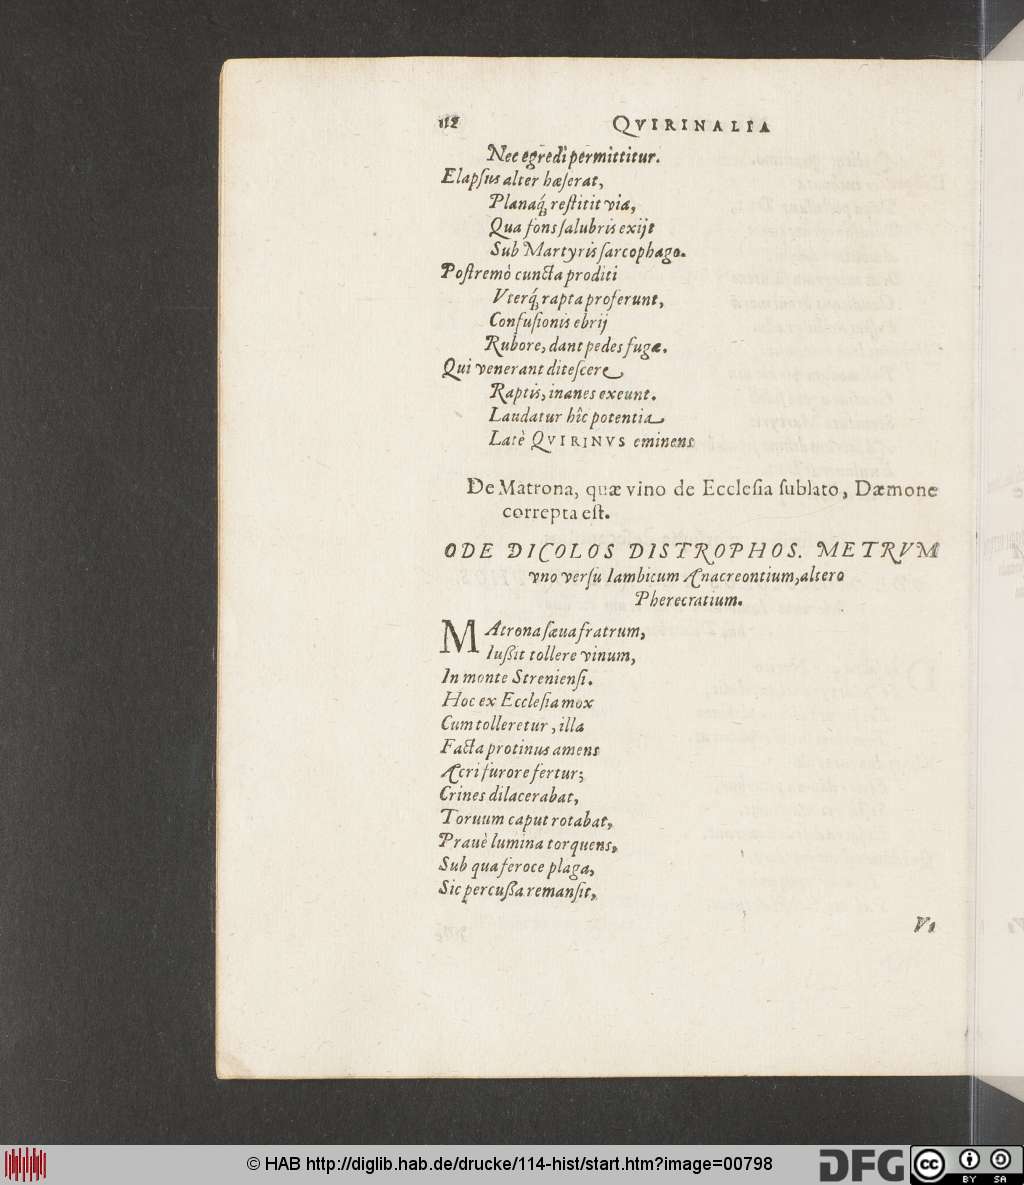 112 QVIRINALIA
Nec egredi permittitur.
Elapſus alter hæſerat,
Planaq́; reſtitit via,
Qua fons ſalubris exijt
Sub Martyris ſarcophago.
Poſtremò cuncta proditi
Vterq́; rapta proferunt,
Confuſionis ebrij
Rubore, dant pedes fugæ.
Qui venerant diteſcere
Raptis, inanes exeunt.
Laudatur hîc potentia
Latè QVIRINVS eminens
De Matrona, quæ vino de Eccleſia ſublato, Dæmone
correpta eſt.
ODE DICOLOS DISTROPHOS. METRVM
vno verſu Iambicum Anacreontium, altero
Pherecratium.
MAtrona ſæua fratrum,
Iußit tollere vinum,
In monte Strenienſi.
Hoc ex Eccleſia mox
Cum tolleretur, illa
Facta protinus amens
Acri furore fertur;
Crines dilacerabat,
Toruum caput rotabat,
Prauè lumina torquens,
Sub qua feroce plaga,
Sic percußa remanſit,
Vt
© HAB http://diglib.hab.de/drucke/114-hist/start.htm?image=00798
DFG
cc BY SA